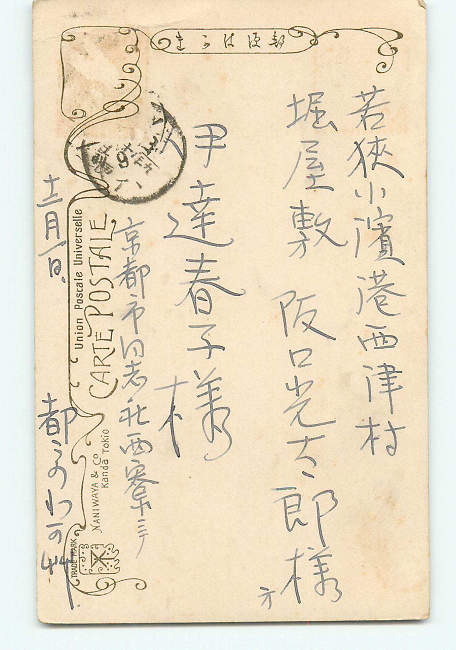 きがは便郵
若狭小濱港西津村
堀屋敷 阪口光太郎様
方
伊達春子様
京都市同志社西寮ニテ
十二月一日
Union Postale Universelle
CARTE POSTALE
NANIWAYA & CO
Kanda TOKIO
TRADE MARK